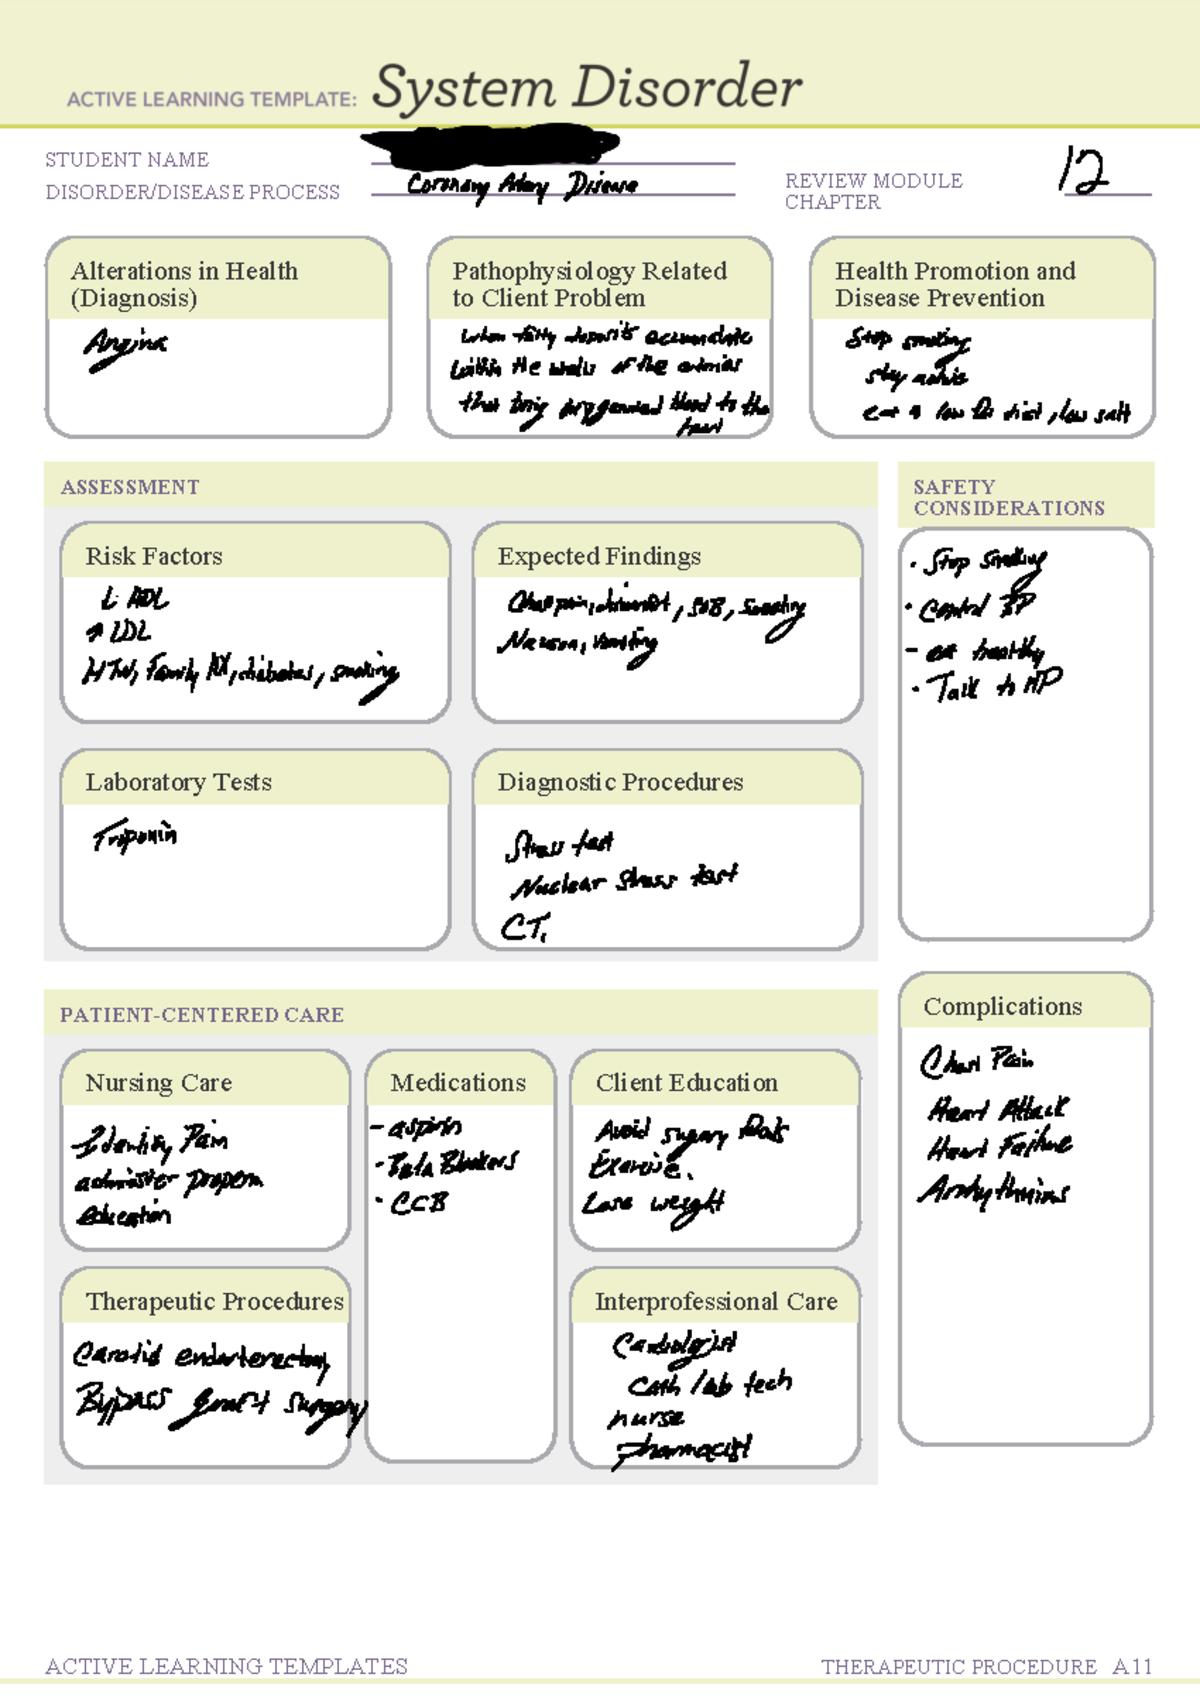 ACTIVE LEARNING TEMPLATE: System Disorder
STUDENT NAME
DISORDER/DISEASE PROCESS Coronary Artery Disease
REVIEW MODULE
CHAPTER
12
Alterations in Health
(Diagnosis)
Angina
Pathophysiology Related
to Client Problem
When fatty deposits accumulate
within the walls of the arteries
that bring oxygenated blood to the
heart
Health Promotion and
Disease Prevention
Stop smoking
stay active
eat a low fat diet, low salt
ASSESSMENT
Risk Factors
HDL
↑ LDL
HTN, Family HX, diabetes, smoking
Expected Findings
Chest pain, SOB, Sweating
Nausea, vomiting
Laboratory Tests
Troponin
Diagnostic Procedures
Stress test
Nuclear stress test
CT,
SAFETY
CONSIDERATIONS
· Stop smoking
· Control BP
- eat healthy
· Talk to HP
PATIENT-CENTERED CARE
Nursing Care
- Identify Pain
administer
education
Medications
- aspirin
· Beta Blockers
· CCB
Client Education
Avoid sugary foods
Exercise.
Lose weight
Therapeutic Procedures
Carotid endarterectomy
Bypass graft surgery
Interprofessional Care
Cardiologist
Cath lab tech
nurse
pharmacist
Complications
Chest Pain
Heart Attack
Heart Failure
Arrhythmias
ACTIVE LEARNING TEMPLATES
THERAPEUTIC PROCEDURE A11